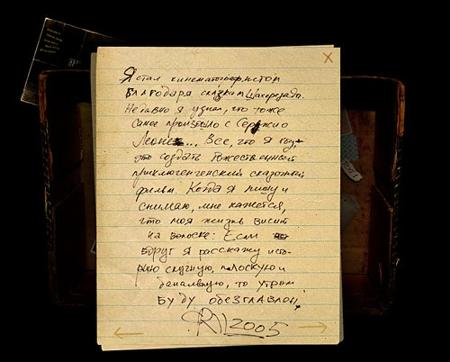 Я стал кинематографистом
благодаря сказкам Шахерезады.
Недавно я узнал, что тоже
самое произошло с Серджио
Леоне... Все, что я хочу,
это создать божественный
приключенческий сказочный
фильм. Когда я пишу и
снимаю, мне кажется,
что моя жизнь висит
на волоске: Если
вдруг я расскажу исто-
рию скучную, плоскую и
банальную, то утром
буду обезглавлен.
2005